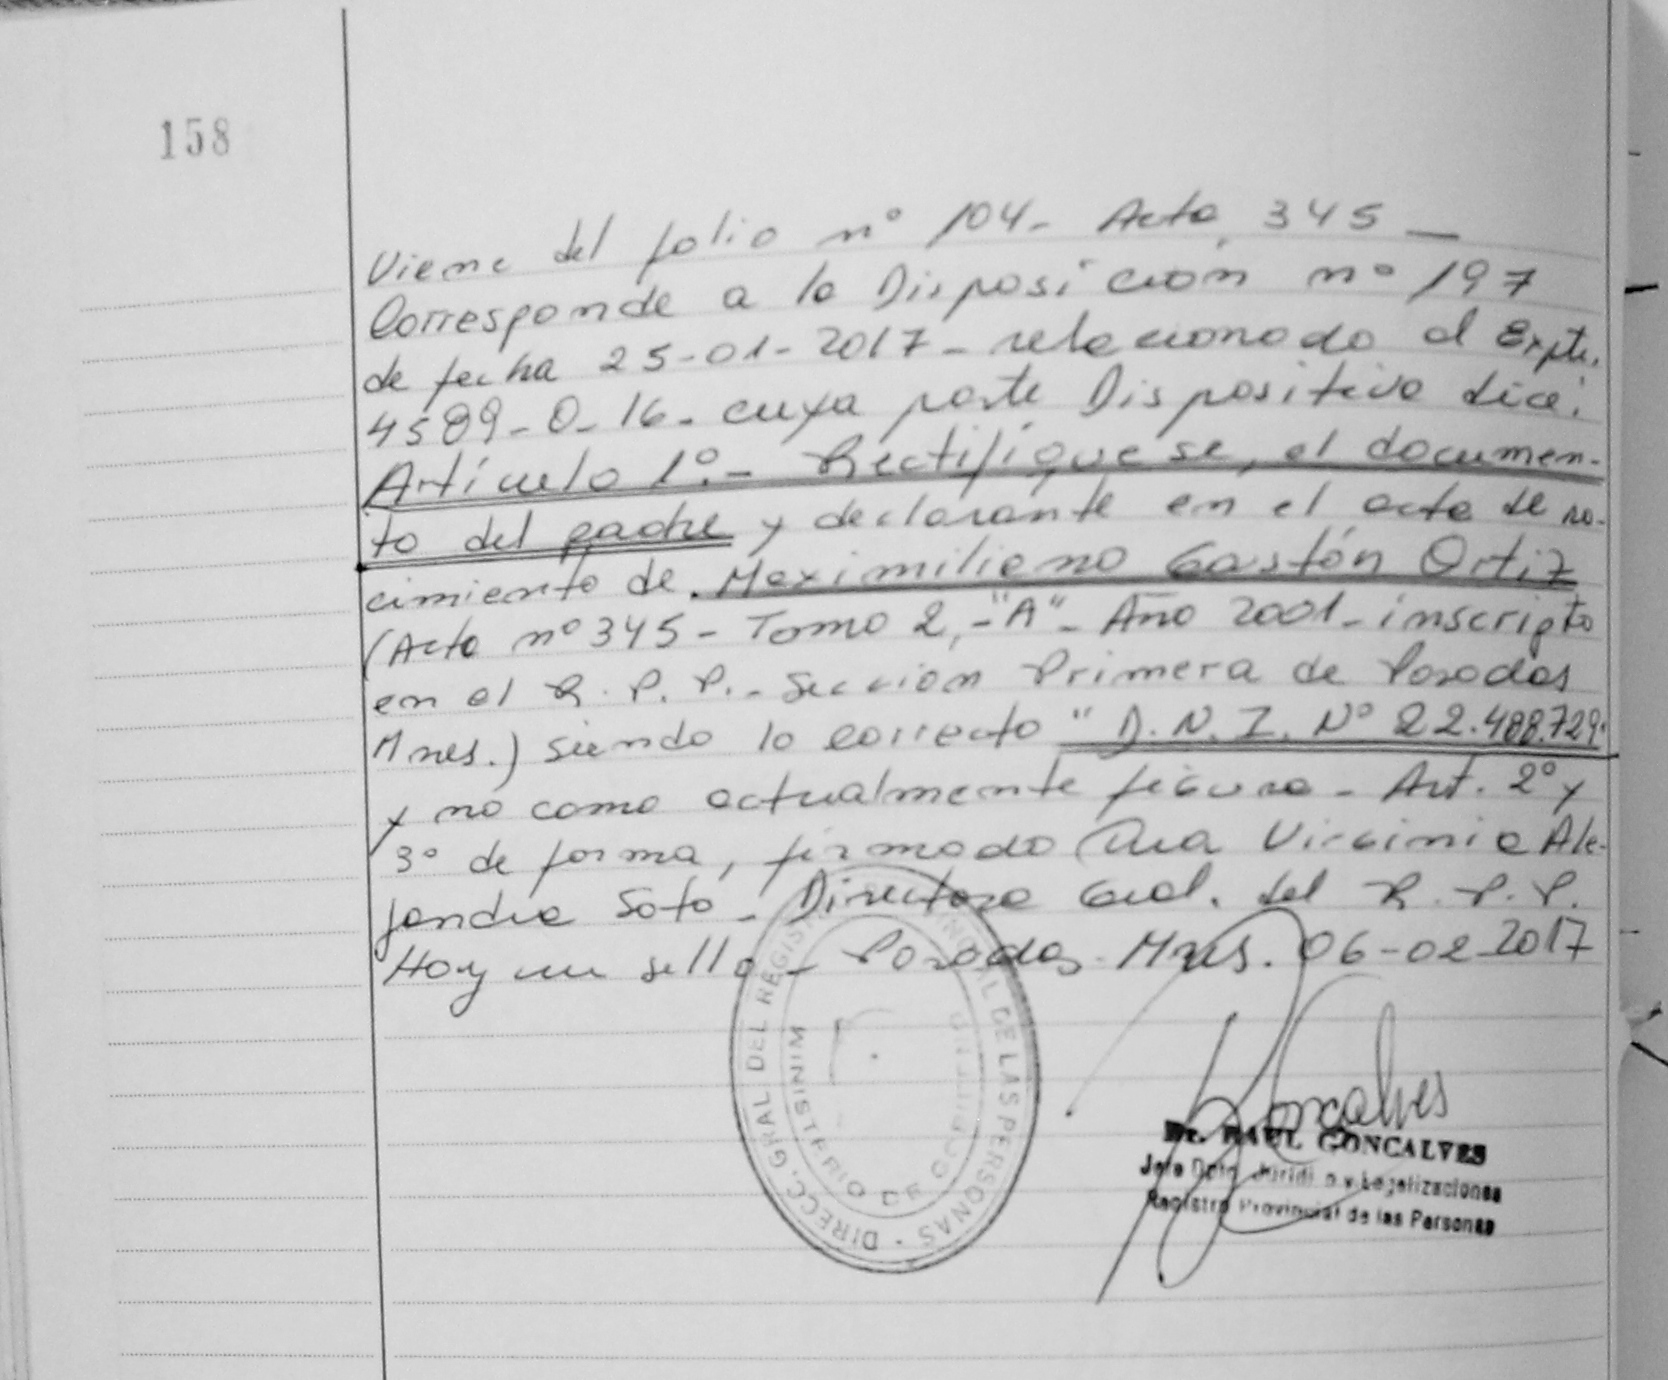 158
Viene del folio nº 104- Acta 345 —
Corresponde a la Disposición nº 197
de fecha 25-01-2017- relacionado al Expte.
4589-O-16- cuya parte Dispositiva dice:
Artículo 1º.- Rectifíquese, el documen-
to del padre y declarante en el acta de na-
cimiento de Maximiliano Gastón Ortiz
(Acta nº 345- Tomo 2,-"A"- Año 2001- inscripto
en el R.P.P.- Sección Primera de Posadas
Mnes.) siendo lo correcto "D.N.I. Nº 22.488.729.
y no como actualmente figura- Art. 2º y
3º de forma, firmado Dra Virginia Ale-
jandra Soto- Directora Gral. del R.P.P.
Hay un sello- Posadas- Mnes. 06-02-2017
DIRECC. GRAL DEL REGISTRO PROVINCIAL DE LAS PERSONAS -
MINISTERIO DE GOBIERNO
Goncalves
Dr. RAUL GONCALVES
Jefe Dpto. Jurídico y Legalizaciones
Registro Provincial de las Personas